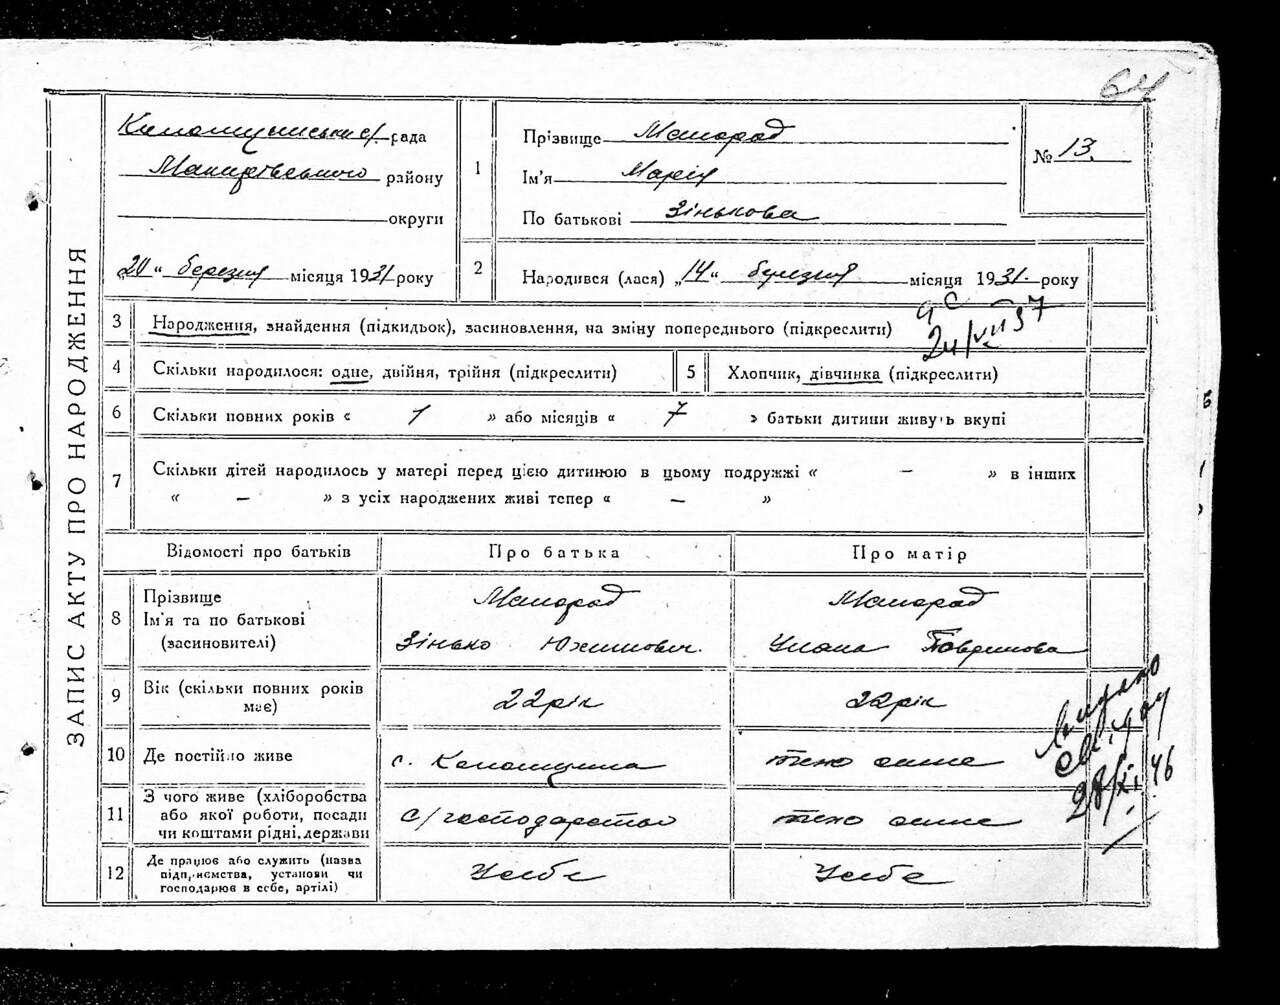 64
ЗАПИС АКТУ ПРО НАРОДЖЕННЯ
рада
району
округи
„20“ березня місяця 1931 року
1
Прізвище
Ім'я Марія
По батькові Зінькова
№ 13.
2
Народився (лася) „14“ березня місяця 1931 року
3 Народження, знайдення (підкидьок), засиновлення, на зміну попереднього (підкреслити)
4 Скільки народилося: одне, двійня, трійня (підкреслити)
5 Хлопчик, дівчинка (підкреслити)
6 Скільки повних років « 1 » або місяців « 7 » батьки дитини живуть вкупі
7 Скільки дітей народилось у матері перед цією дитиною в цьому подружжі « — » в інших
« — » з усіх народжених живі тепер « — »
Відомості про батьків
Про батька
Про матір
8
Прізвище
Ім'я та по батькові
(засиновителі)
Зінько Юхимович.
Уляна
9
Вік (скільки повних років
має)
22 рік
22 рік
10 Де постійно живе
с.
там саме
11
З чого живе (хліборобства
або якої роботи, посади
чи коштами рідні, держави
с/господарство
там саме
12
Де працює або служить (назва
підприємства, установи чи
господарює в себе, артілі)
У себе
У себе
28/XI 46